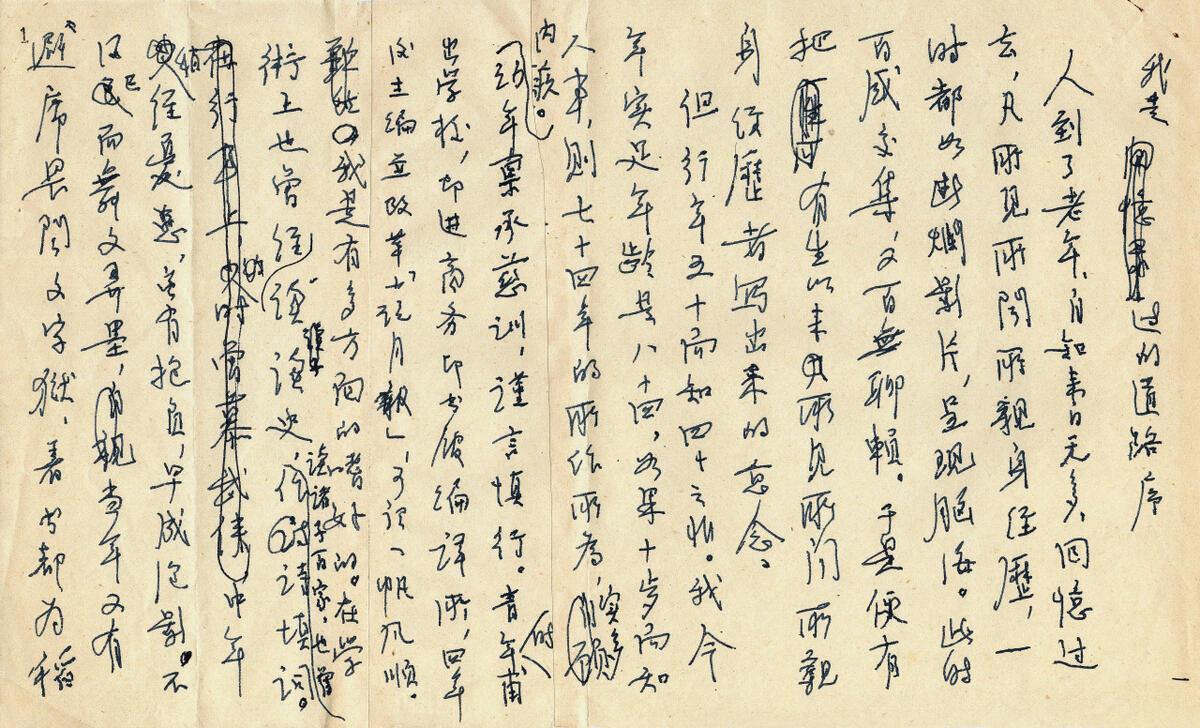 我走过的道路序
人到了老年，自知来日无多，回憶过
去，凡所見所聞所親身经歷，一
时都如断爛影片，呈現脑海。此时
百感交集，又百無聊賴。于是便有
把有生以来所見所闻所親
身经歷者写出来的意念。
但行年五十而知四十之非。我今
年实足年龄是八十四，如果十岁而知
人事，则七十四年的所作所為，实多
内疚。
幼年禀承慈訓，谨言慎行。青年时甫
出学校，即进商务印书馆编譯所，四年
后主编並改革「小说月報」，可谓一帆风順。
我是有多方面的嗜好的。在学
術上也曾经读经读史，读諸子百家，也曾作诗填词。
中年
稍经憂患，虽有抱负，早成泡影。不
得已而舞文弄墨，当年又有
避席畏闻文字狱，著书都为稻
1